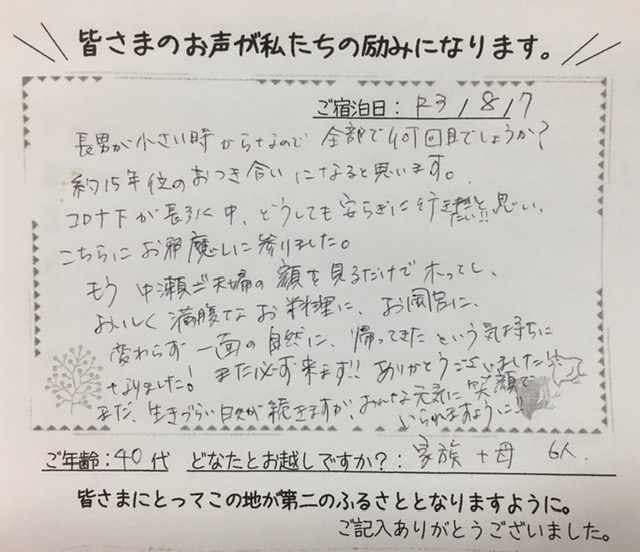 皆さまのお声が私たちの励みになります。
ご宿泊日: R3/8/7
長男が小さい時からなので 全部で何回目でしょうか?
約15年位のおつき合いになると思います。
コロナ下が長引く中、どうしても安らぎに行きたい!!と思い、
こちらにお邪魔しに参りました。
もう 中瀬ご夫婦の顔を見るだけでホッとし、
おいしく満腹なお料理に、お風呂に、
変わらず一面の自然に、帰ってきたという気持ちに
なりました! また必ず来ます!! ありがとうございました!!
まだ、生きづらい日々が続きますが、みんな元気に笑顔で
いられますように!!
ご年齢:40代 どなたとお越しですか?: 家族+母 6人.
皆さまにとってこの地が第二のふるさととなりますように。
ご記入ありがとうございました。